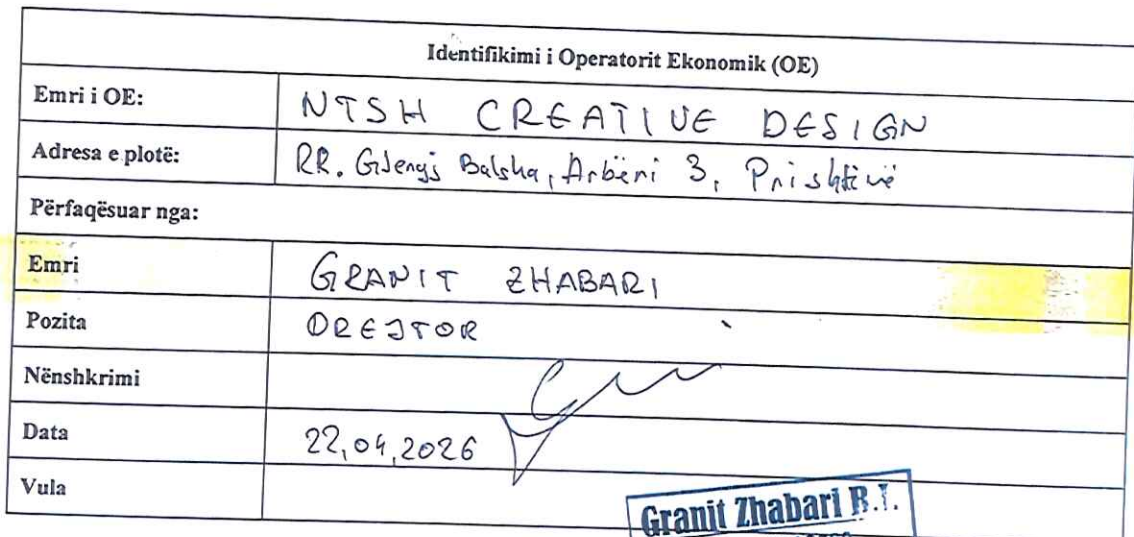 Identifikimi i Operatorit Ekonomik (OE)
Emri i OE: NTSH CREATIVE DESIGN
Adresa e plotë: RR. Gjergj Balsha, Arbëri 3, Prishtinë
Përfaqësuar nga:
Emri GRANIT ZHABARI
Pozita DREJTOR
Nënshkrimi
Data 22,04,2026
Vula
Granit Zhabari B.I.